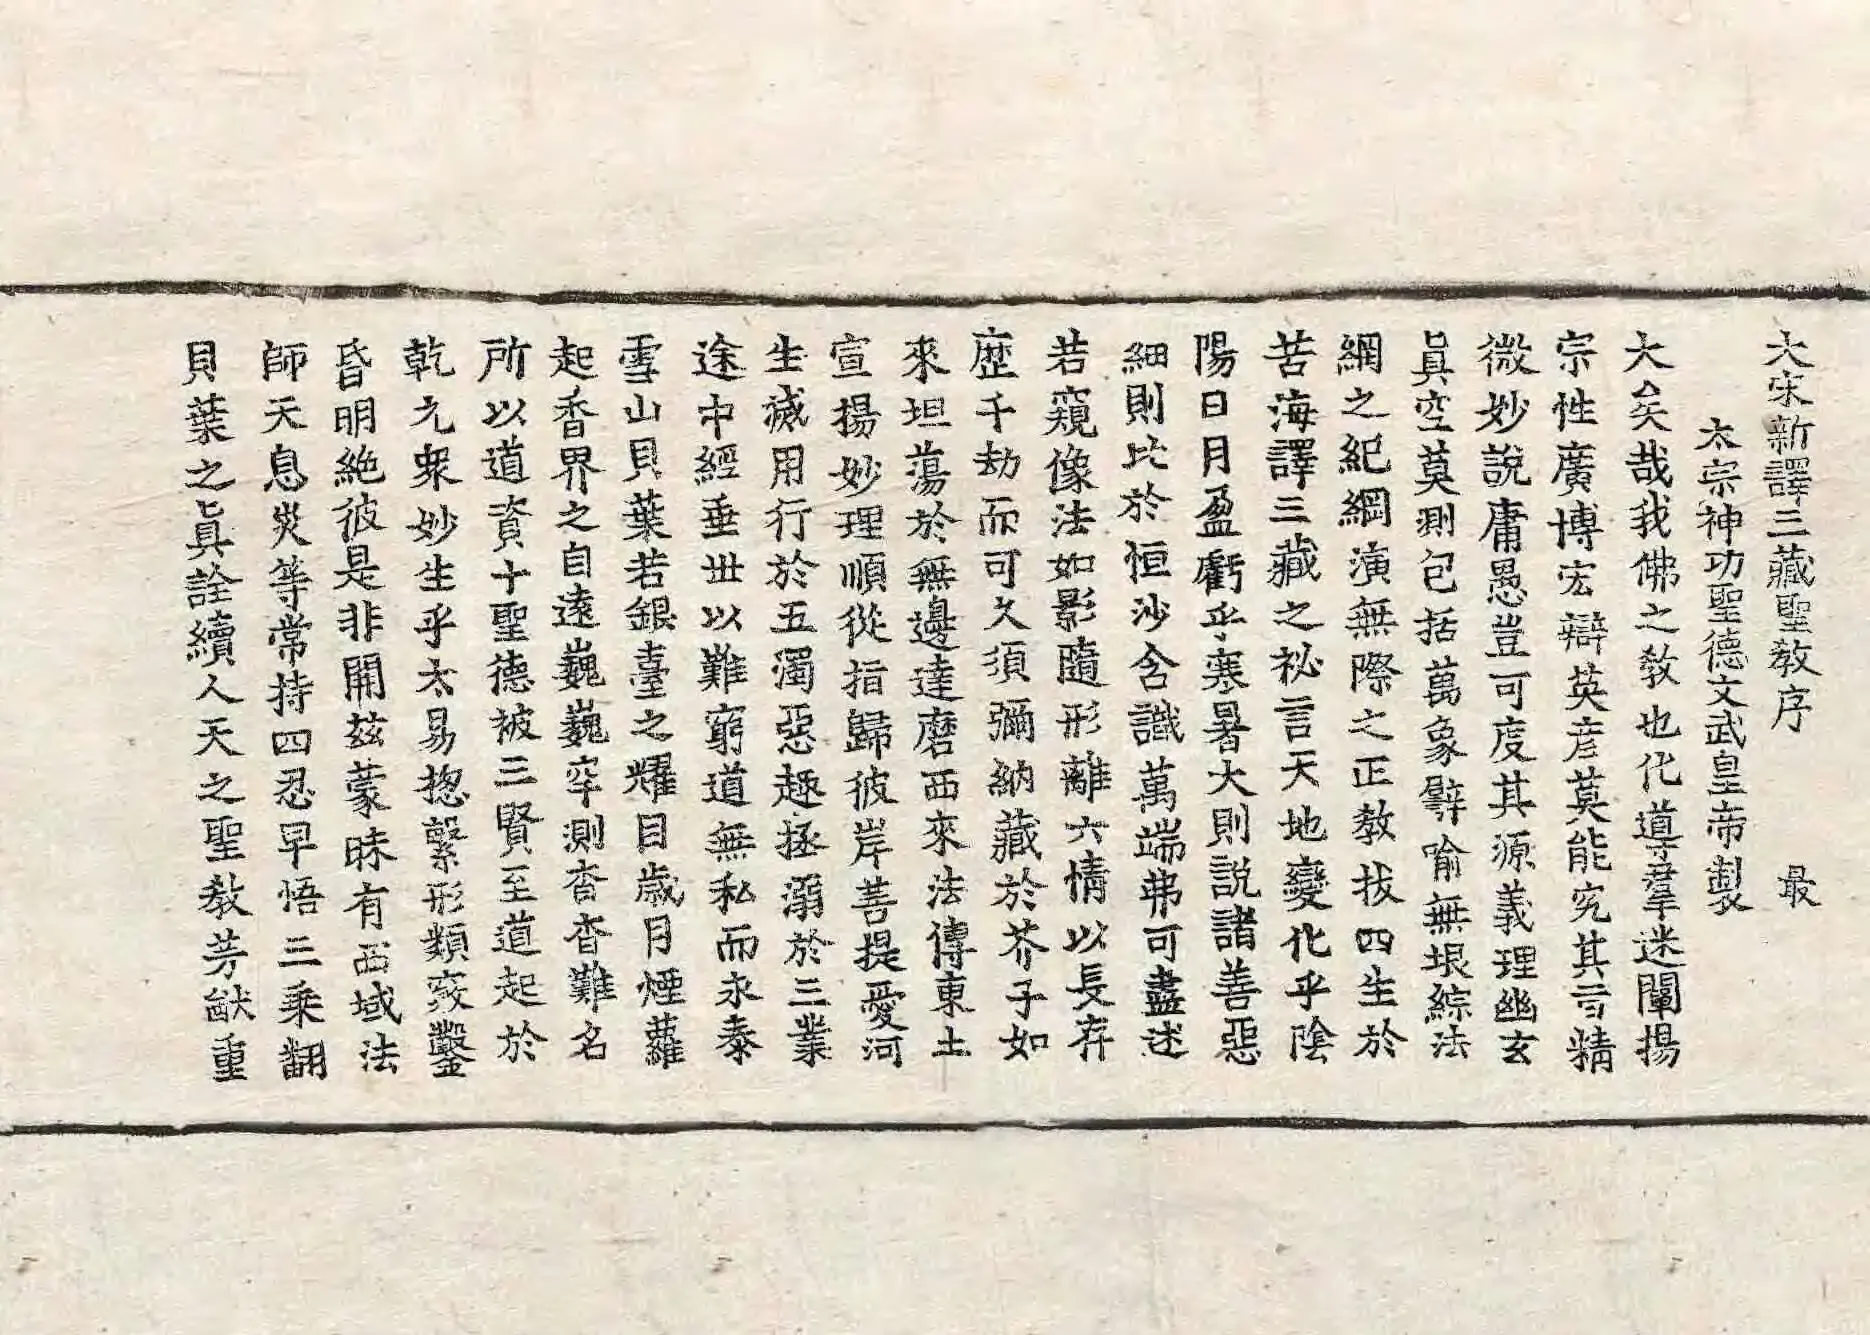 大宋新譯三藏聖教序　最
太宗神功聖德文武皇帝製
大矣哉我佛之教也化導羣迷闡揚
宗性廣博宏辯英彦莫能究其旨精
微妙說庸愚豈可度其源義理幽玄
眞空莫測包括萬象譬喻無垠綜法
網之紀綱演無際之正教拔四生於
苦海譯三藏之祕言天地變化乎陰
陽日月盈虧乎寒暑大則說諸善惡
細則比於恒沙含識萬端弗可盡述
若窺像法如影隨形離六情以長存
歷千劫而可久須彌納藏於芥子如
來坦蕩於無邊達磨西來法傳東土
宣揚妙理順從指歸彼岸菩提愛河
生滅用行於五濁惡趣拯溺於三業
途中經垂世以難窮道無私而永泰
雪山貝葉若銀臺之耀目歲月煙蘿
起香界之自遠巍巍罕測杳杳難名
所以道資十聖德被三賢至道起於
乾元衆妙生乎太易揔繫形類竅鑿
昏明絶彼是非開茲蒙昧有西域法
師天息災等常持四忍早悟三乘翻
貝葉之眞詮續人天之聖教芳猷重